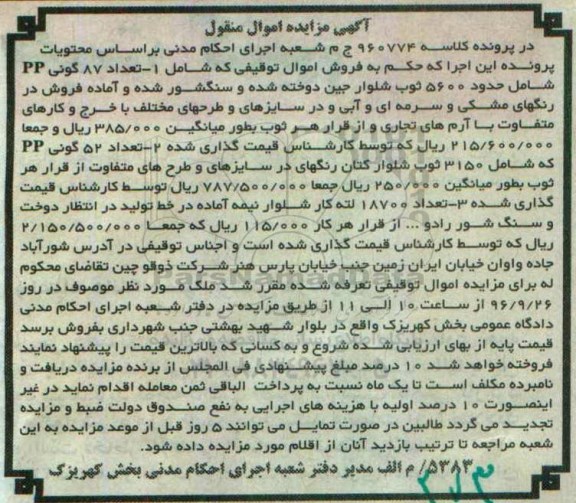 آگهی مزایده اموال منقول
در پرونده کلاسه ۹۶۰۷۷۴ ج م شعبه اجرای احکام مدنی براساس محتویات
پرونده این اجرا که حکم به فروش اموال توقیفی که شامل ۱-تعداد ۸۷ گونی PP
شامل حدود ۵۶۰۰ ثوب شلوار جین دوخته شده و سنگشور شده و آماده فروش در
رنگهای مشکی و سرمه ای و آبی و در سایزهای و طرحهای مختلف با خرج و کارهای
متفاوت با آرم های تجاری و از قرار هر ثوب بطور میانگین ۳۸۵/۰۰۰ ریال و جمعا
۲۱۵/۶۰۰/۰۰۰ ریال که توسط کارشناس قیمت گذاری شده ۲-تعداد ۵۲ گونی PP
که شامل ۳۱۵۰ ثوب شلوار کتان رنگهای در سایزهای و طرح های متفاوت از قرار هر
ثوب بطور میانگین ۲۵۰/۰۰۰ ریال جمعا ۷۸۷/۵۰۰/۰۰۰ ریال توسط کارشناس قیمت
گذاری شده ۳-تعداد ۱۸۷۰۰ لته کار شلوار نیمه آماده در خط تولید در انتظار دوخت
و سنگ شور رادو ... از قرار هر کار ۱۱۵/۰۰۰ ریال که جمعا ۲/۱۵۰/۵۰۰/۰۰۰
ریال که توسط کارشناس قیمت گذاری شده است و اجناس توقیفی در آدرس شورآباد
جاده واوان خیابان ایران زمین جنب خیابان پارس هنر شرکت ذوقو چین تقاضای محکوم
له برای مزایده اموال توقیفی تعرفه شده مقرر شد ملک مورد نظر موصوف در روز
۹۶/۹/۲۶ از ساعت ۱۰ الی ۱۱ از طریق مزایده در دفتر شعبه اجرای احکام مدنی
دادگاه عمومی بخش کهریزک واقع در بلوار شهید بهشتی جنب شهرداری بفروش برسد
قیمت پایه از بهای ارزیابی شده شروع و به کسانی که بالاترین قیمت را پیشنهاد نمایند
فروخته خواهد شد ۱۰ درصد مبلغ پیشنهادی فی المجلس از برنده مزایده دریافت و
نامبرده مکلف است تا یک ماه نسبت به پرداخت الباقی ثمن معامله اقدام نماید در غیر
اینصورت ۱۰ درصد اولیه با هزینه های اجرایی به نفع صندوق دولت ضبط و مزایده
تجدید می گردد طالبین در صورت تمایل می توانند ۵ روز قبل از موعد مزایده به این
شعبه مراجعه تا ترتیب بازدید آنان از اقلام مورد مزایده داده شود.
۵۳۸۳/ م الف مدیر دفتر شعبه اجرای احکام مدنی بخش کهریزک